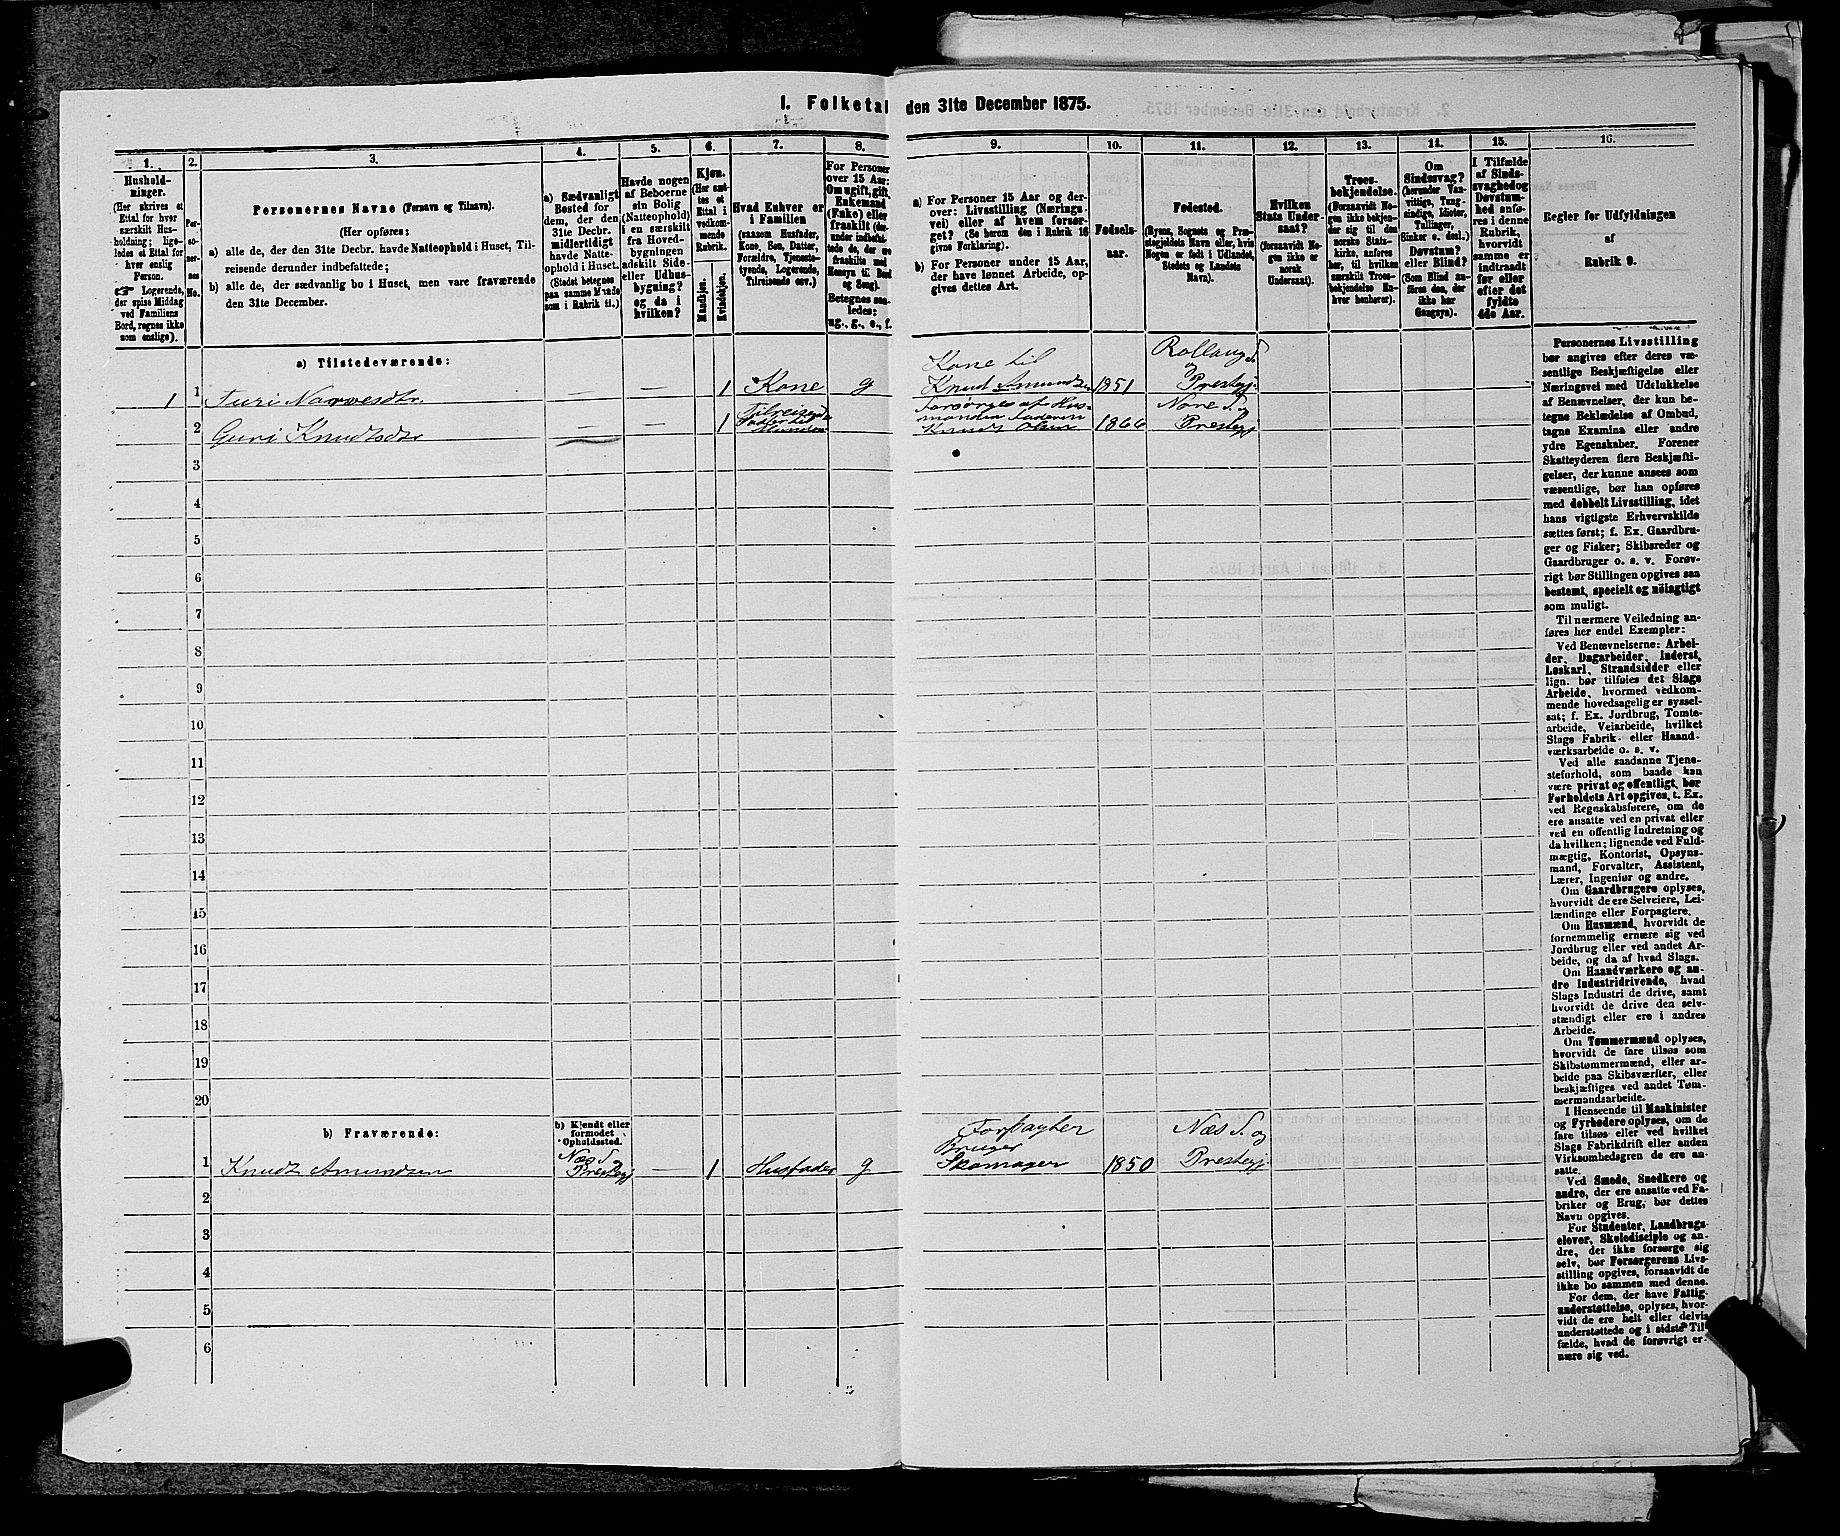 I. Folketal den 31te December 1875.
1.
2.
3.
4.
5.
6.
7.
8.
9.
10.
11.
12.
13.
14.
15.
16.
Hushold-
ninger.
(Her skrives et
Ettal for hver
særskilt Hus-
holdning; lige-
ledes et Ettal for
hver enslig
Person.
☞ Logerende,
der spise Middag
ved Familiens
Bord, regnes ikke
som enslige).
Per-
so-
ner-
nes
No.
Personernes Navne (Fornavn og Tilnavn).
(Her opføres:
a) alle de, der den 31te Decbr. havde Natteophold i Huset, Til-
reisende derunder indbefattede;
b) alle de, der sædvanlig bo i Huset, men vare fraværende
den 31te December.
a) Sædvanligt
Bosted for
dem, der den
31te Decbr.
midlertidigt
havde Natte-
ophold i Huset.
(Stedet betegnes
paa samme Maade
som i Rubrik 11.)
Havde nogen
af Beboerne
sin Bolig
(Natteophold)
i en særskilt
fra Hoved-
bygningen
adskilt Side-
eller Udhus-
bygning?
og da i
hvilken?
Kjøn.
(Her sæt-
tes et
Ettal i
vedkom-
mende
Rubrik.
Mandkjøn.
Kvindekjøn.
Hvad Enhver er
i Familien
(saasom Husfader,
Kone, Søn, Datter,
Forældre, Tjeneste-
tyende, Logerende,
Tilreisende osv.)
For Personer
over 15 Aar:
Om ugift, gift,
Enkemand
(Enke) eller
fraskilt (der-
under indbefat-
tede de, der ere
fraskilte med
Hensyn til Bord
og Seng).
Betegnes saa-
ledes:
ug., g., e., f.
a) For Personer 15 Aar og der-
over: Livsstilling (Nærings
vei) eller af hvem forsør-
get? (Se herom den i Rubrik 16
givne Forklaring).
b) For Personer under 15 Aar,
der have lønnet Arbeide, op-
gives dettes Art.
Fødsels-
aar.
Fødested.
(Byens, Sognets og Præ-
stegjeldets Navn eller, hvis
Nogen er født i Udlandet,
Stedets og Landets
Navn).
Hvilken
Stats Under-
saat?
(forsaavidt No-
gen ikke er
norsk
Undersaat).
Troes-
bekjendelse.
(Forsaavidt No-
gen ikke bekjen-
der sig til den
norske Stats-
kirke, anføres
her, til hvilken
særskilt Troes-
bekjendelse En-
hver henhører).
Om
Sindssvag?
(herunder Van-
vittige, Tung-
sindige, Idioter,
Tullinger,
Sinker o. desl.)
Døvstum?
eller Blind?
(Som Blind an-
føres den, der
ikke har
Gangsyn).
I Tilfælde
af Sinds-
svaghed og
Døvstum-
hed anfø-
res i denne
Rubrik,
hvorvidt
samme er
indtraadt
før eller
efter det
fyldte
4de Aar.
Regler for Udfyldningen
af
Rubrik 9.
a) Tilstedeværende:
1 1 Turi Narvesdtr. — — 1 Kone g Kone til Knud Amundsen 1851 Rollaug S. og Prestegj.
2 Guri Knudtsdtr — — 1 Tilreisende Forsørges af Hus-
manden Faderen
Knudt Olsen 1866 Nore S. og Prestegj
3
4
5
6
7
8
9
10
11
12
13
14
15
16
17
18
19
20
b) Fraværende:
b) Kjendt eller
formodet
Opholdssted.
1 Knudt Amundsen Næs S. og Prestegj — 1 Husfader g Forpagter
Bruger
Skomager 1850 Næs S. og Prestegj.
2
3
4
5
6
Personernes Livsstilling
bør angives efter deres væ-
sentlige Beskjæftigelse eller
Næringsvei med Udelukkelse
af Benævnelser, der kun be-
tegne Beklædelse af Ombud,
tagne Examina eller andre
ydre Egenskaber. Forener
Skatteyderen flere Beskjæfti-
gelser, der kunne ansees som
væsentlige, bør han opføres
med dobbelt Livsstilling, idet
hans vigtigste Erhvervskilde
sættes først; f. Ex. Gaardbru-
ger og Fisker; Skibsreder og
Gaardbruger o. s. v. Forøv-
rigt bør Stillingen opgives saa
bestemt, specielt og nöiagtigt
som muligt.
Til nærmere Veiledning an-
føres her endel Exempler:
Ved Benævnelserne: Arbei-
der, Dagarbeider, Inderst,
Løskarl, Strandsidder eller
lign. bør tilføies det Slags
Arbeide, hvormed vedkom-
mende hovedsagelig er syssel-
sat; f. Ex. Jordbrug, Tomte-
arbeide, Veiarbeide, hvilket
Slags Fabrik- eller Haand-
værksarbeide o. s. v.
Ved alle saadanne Tjene-
steforhold, som baade kan
være privat og offentligt, bør
Forholdets Art opgives, t. Ex.
ved Regnskabsførere, om de
ere ansatte ved en privat eller
ved en offentlig Indretning og
da hvilken; lignende ved Fuld-
mægtig, Kontorist, Opsyns-
mand, Forvalter, Assistent,
Lærer, Ingeniør og andre.
Om Gaardbrugere oplyses,
hvorvidt de ere Selveiere, Lei-
lændinge eller Forpagtere.
Om Husmænd, hvorvidt de
fornemmelig ernære sig ved
Jordbrug eller ved andet Ar-
beide, og da af hvad Slags.
Om Haandværkere og an-
dre Industridrivende, hvad
Slags Industri de drive, samt
hvorvidt de drive den selv-
stændigt eller ere i andres
Arbeide.
Om Tømmermænd oplyses,
hvorvidt de fare tilsøs som
Skibstømmermænd, eller ar-
beide paa Skibsværfter, eller
beskjæftiges ved andet Tøm-
mermandsarbeide.
I Henseende til Maskinister
og Fyrbødere oplyses, om de
fare tilsøs eller ved hvilket
Slags Fabrikdrift eller anden
Virksomhedsgren de ere an-
satte.
Ved Smede, Snedkere og
andre, der ere ansatte ved Fa-
briker og Brug, bør dettes
Navn opgives.
For Studenter, Landbrugs-
elever, Skoledisciple og an-
dre, der ikke forsørge sig
selv, bør Forsørgerens Livs-
stilling opgives, forsaavidt de
ikke bo sammen med denne.
For dem, der have Fattig-
understøttelse, oplyses, hvor-
vidt de ere helt eller delvis
understøttede og i sidste Til-
fælde, hvad de forøvrigt er-
nære sig ved.